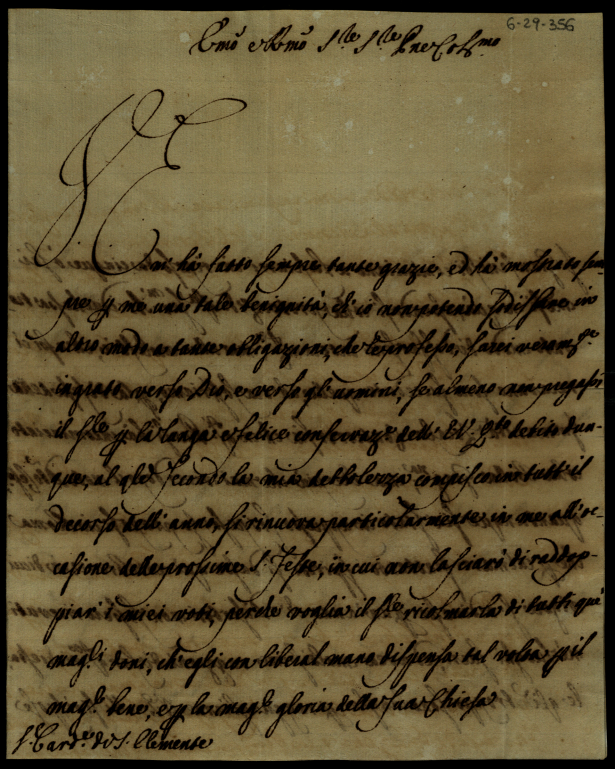 6-29-356
Emo e Rmo Sre Sre Pne Colmo
V E
mi hà fatto sempre tante grazie, ed hà mostrato sem-
pre p me una tale benignità, ch'io non potendo sodisfare in
altro modo a tante obligazioni, che le professo, sarei veramte
ingrato verso Dio, e verso gl'uomini, se almeno non pregassi
il Sre p la lunga e felice conservazne dell' E.V. Qto debito dun-
que, al qle secondo la mia debbolezza compisco in tutt'il
decorso dell'anno, si rinuova particolarmente in me all'oc-
casione delle prossime S. Feste, in cui non lasciarò di raddop-
piar' i miei voti, perche voglia il Sre ricolmarla di tutti que'
maggri doni, ch'egli con liberal mano dispensa tal volta p il
maggr bene, e p la maggr gloria della sua Chiesa
S. Cardle di S. Clemente